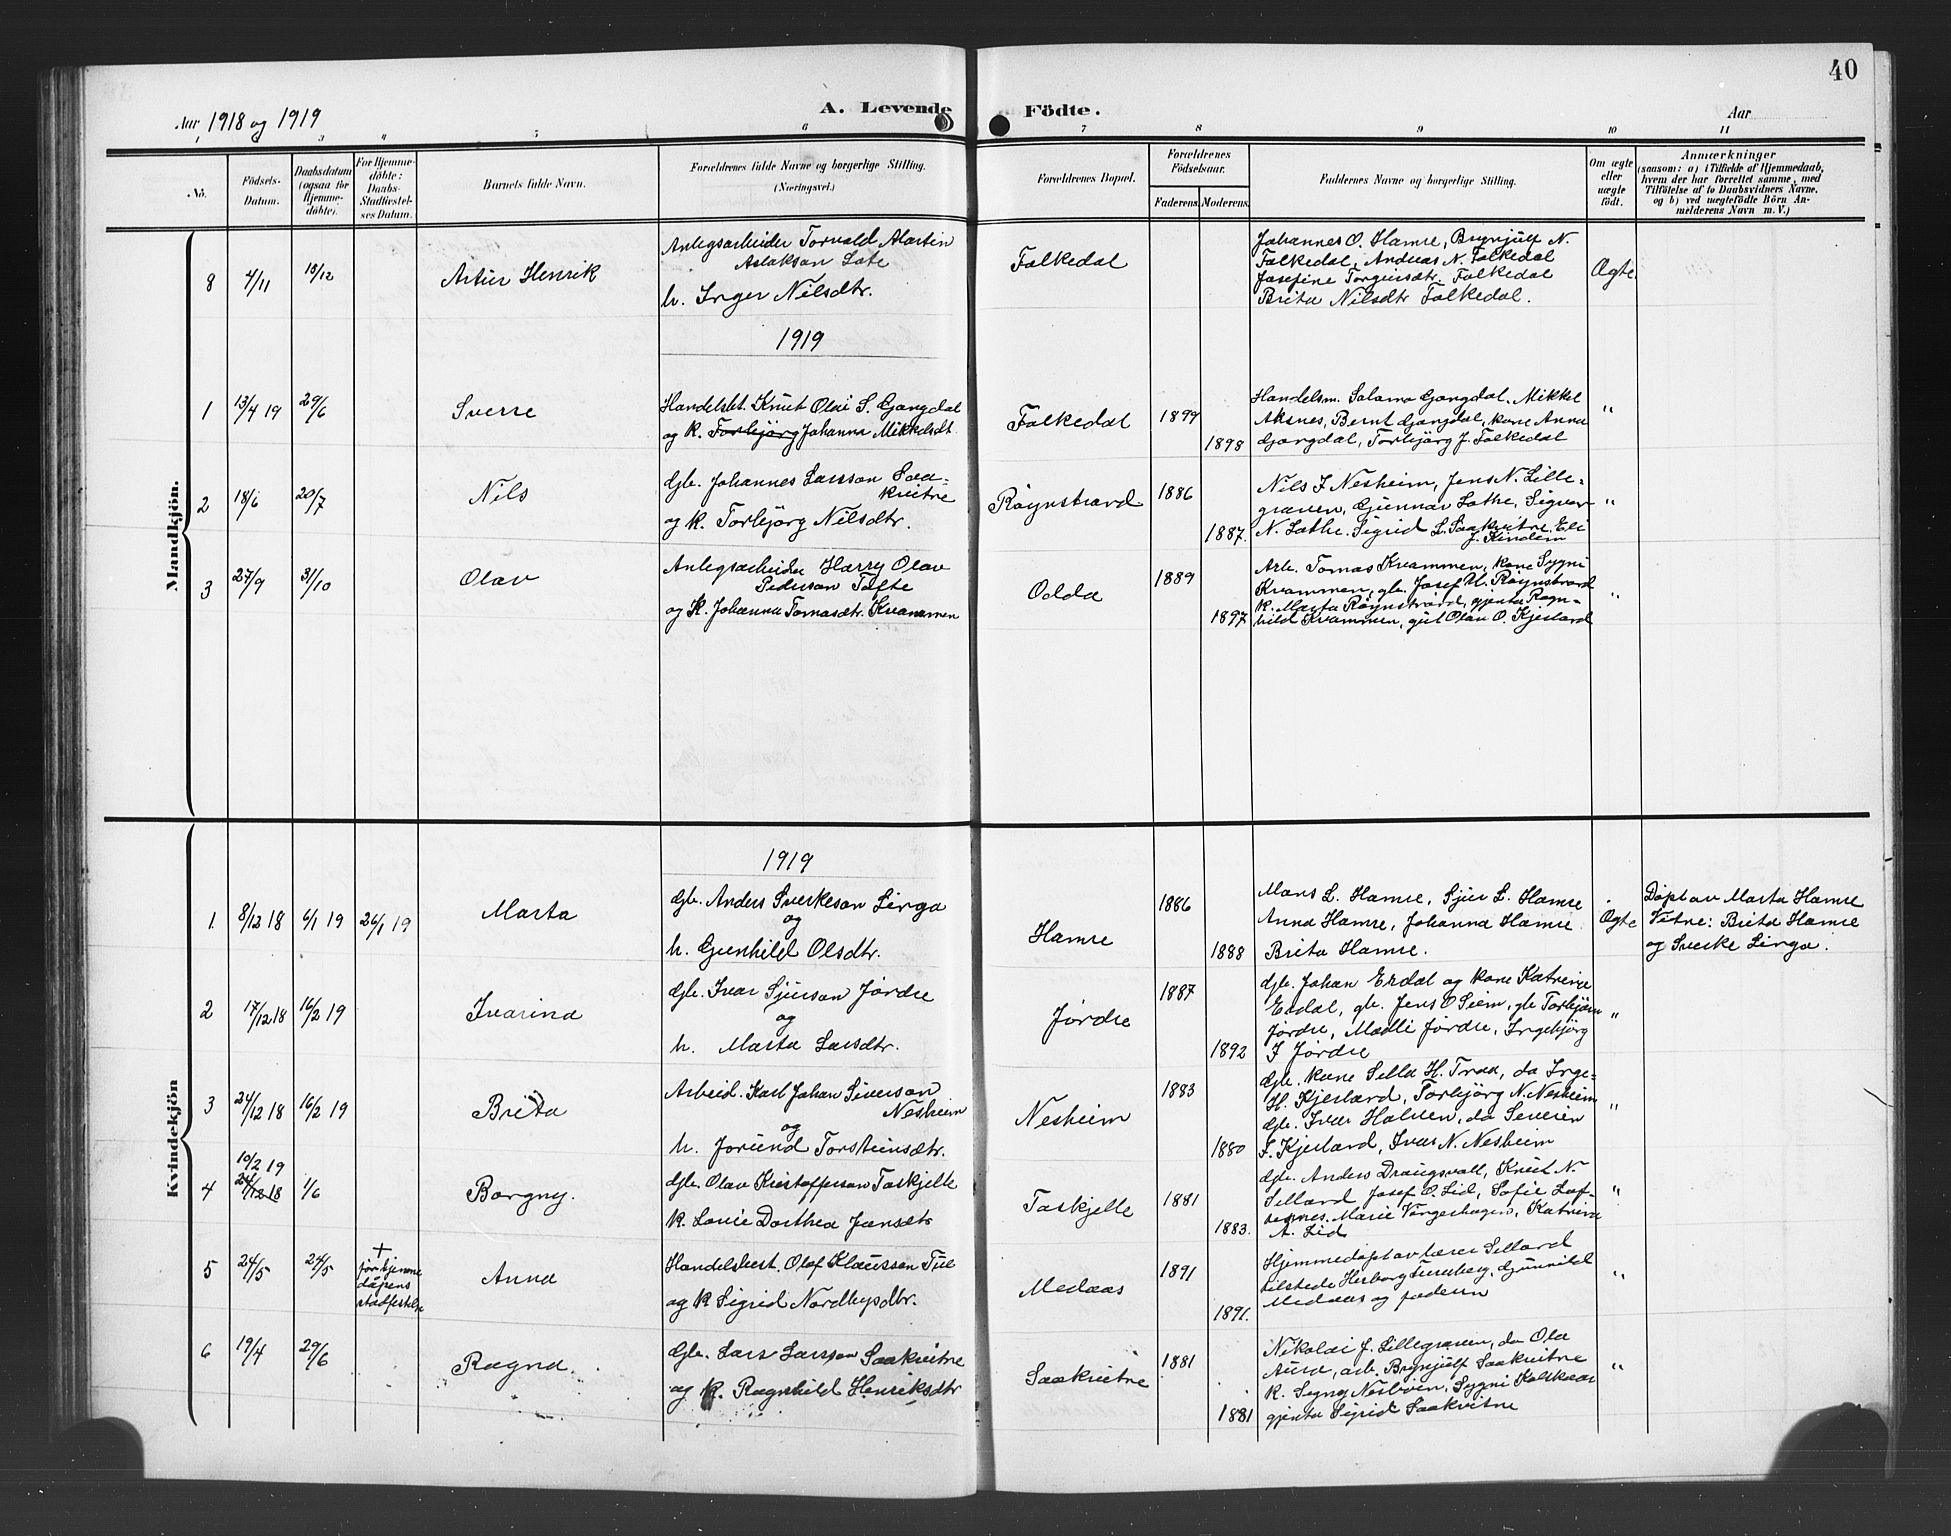 40
Aar 1918 og 1919
A. Levende Födte.
Aar
1 3 4 5 6 7 8 9 10 11
No.
Födsels-
Datum.
Daabsdatum
(ogsaa for
Hjemme-
döbte).
For Hjemme-
döbte:
Daabs-
Stadfæstel-
ses Datum.
Barnets fulde Navn.
Forældrenes fulde Navne og borgerlige Stilling.
(Næringsvei.)
Forældrenes Bopæl.
Forældrenes
Födselsaar.
Faderens.
Moderens.
Faddernes Navne og borgerlige Stilling.
Om ægte
eller
uægte
födt.
Anmærkninger
(saasom: a) i Tilfælde af Hjemmedaab,
hvem der har forrettet samme, med
Tilföielse af to Daabsvidners Navne.
og b) ved uægtefödte Börn An-
melderens Navn m. V.)
Mandkjön.
8 4/11 15/12 Artur Henrik
Anlegsarbeider Torvald Martin
Aslakson Lote
h. Inger Nilsdtr.
Folkedal
Johannes O. Hamre, Brynjulf N.
Folkedal, Andreas N. Folkedal
Josefine Torgeirsdtr. Folkedal
Brita Nilsdtr Folkedal.
Ægte
1919
1 13/4 19 29/6 Sverre
Handelsbt. Knut Olai S. Gangdal
og k. Torbjörg Johanna Mikkelsdt
Folkedal
1899
1898
Handelsm. Salamo Gangdal, Mikkel
Aksnes, Bernt Gangdal, kone Anna
Gangdal, Torbjörg J. Folkedal
"
2 18/6 20/7 Nils
Gb. Johannes Larsson Saa-
kvitne
og k. Torbjörg Nilsdtr.
Röynstrand
1886
1887.
Nils I Nesheim, Jens N. Lille-
graven, Gunnar Lothe, Sigvor
N. Lothe. Sigrid L. Saakvitne. Eli
J. Kindem
"
3 27/9 31/10 Olav
Anlegsarbeider Harry Olav
Pederson Tofte
og k. Johanna Tomasdtr. Kvammen
Odda
1889
1897
Arb. Tomas Kvammen, kone Sygni
Kvammen, gb. Josef U. Röynstrand
k. Marta Röynstrand, gjenta Ragn-
hild Kvammen, gut Olav O. Kjerland
"
Kvindekjön
1919
1 8/12 18 6/1 19 26/1 19 Marta
Gb. Anders Sverkeson Linga
og
h. Gunhild Olsdtr.
Hamre
1886
1888
Mons L. Hamre, Sjur L. Hamre
Anna Hamre, Johanna Hamre
Brita Hamre.
Ægte
Döpt av Marta Hamre
Vitne: Brita Hamre
og Sverke Linga.
2 17/12 18 16/2 19 Ivarina
Gb. Ivar Sjurson Jördre
og
h. Marta Larsdtr.
Jördre
1887
1892
Gb. Johan Erdal og kone Katrine
Erdal, gb. Jens O Seim, gb Torbjörn
Jördre, Madli Jördre, Ingebjörg
I Jördre
"
3 24/12 18 16/2 19 Brita
Arbeid. Karl Johan Siverson
Nesheim
og
h. Jorund Torsteinsdtr.
Nesheim
1883
1880
Gb. kone Silla H. Traa, do Inge-
H. Kjerland, Torbjörg N. Nesheim
Gb. Ivar Halsen, do Severin
S. Kjerland, Ivar N. Nesheim
"
10/2 19
4 24/12 18 1/6 Borgny.
Gb. Olav Kristofferson Taskjelle
k. Lovie Dorthea Jansdtr
Taskjelle
1881
1883.
Gb. Anders Draugsvoll, Knut N.
Selland Josef O. Lid, Sofie Lof-
tesnes. Marie Vangerhagen, Katrine
A. Lid
"
5 24/5 24/5
+
för hjemme
dåpens
stadfestelse
Anna
Handelsbest. Olaf Klaussen Tue
og k Sigrid Nordheysdtr.
Medaas
1891
1891.
Hjemmedöpt av lærer Selland
tilstede Herborg Furuberg, Gunvild
Medaas og faderen
"
6 19/4 29/6 Ragna.
Gb. Lars Larsson Saakvitne
og k. Ragnhild Henriksdtr
Saakvitne
1881
1881
Nikolai J. Lillegraven, do Ola
Aura, arb. Brynjulf Saakvitne
k. Signy Nesbven, Sygni Kolskaar
gjenta Sigrid Saakvitne
"